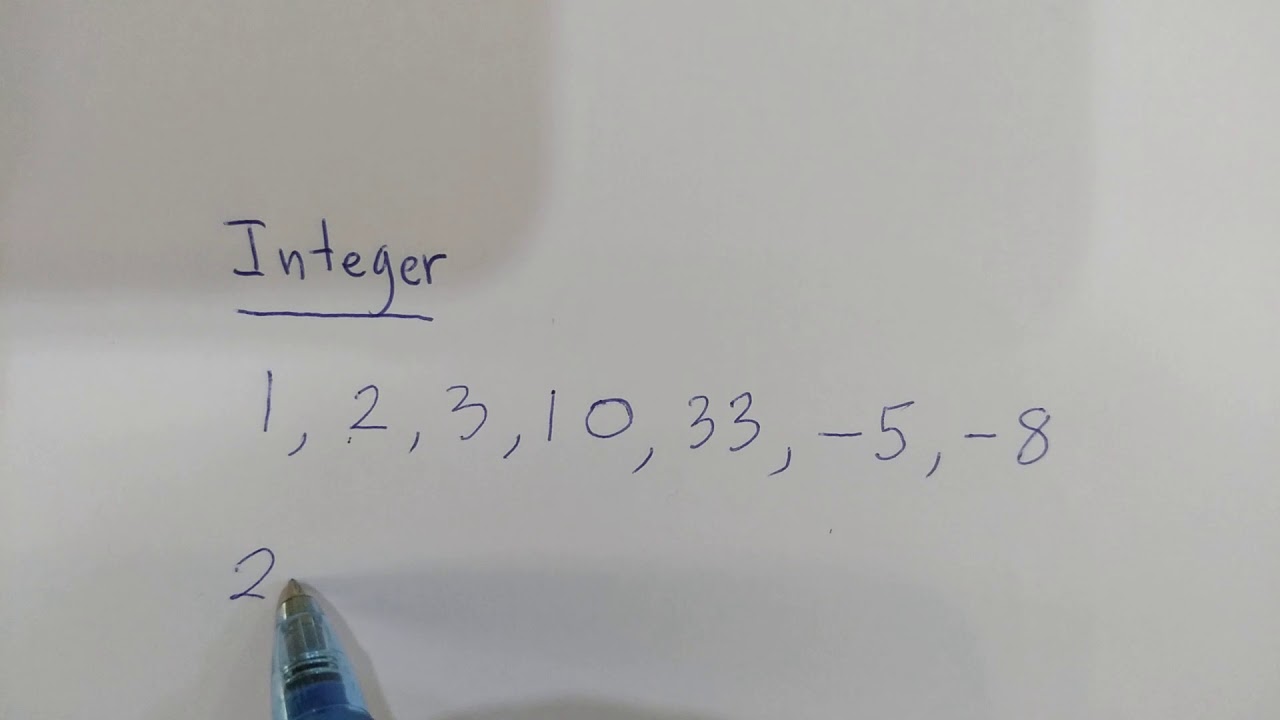 Integer
1, 2, 3, 10, 33, -5, -8
2